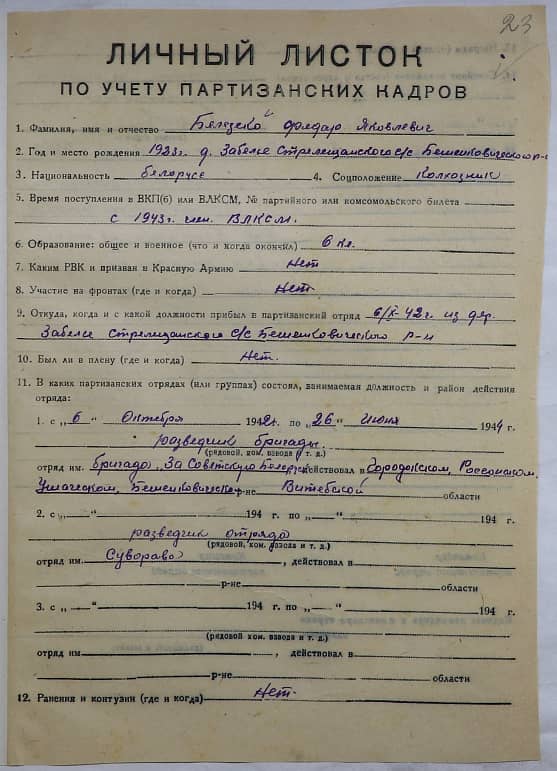 23
ЛИЧНЫЙ ЛИСТОК
ПО УЧЕТУ ПАРТИЗАНСКИХ КАДРОВ
1. Фамилия, имя и отчество Бялезко Федаро Яковлевич
2. Год и место рождения 1923г. д. Забелье Стрелещанского с/с Бешенковического р-н
3. Национальность белорусс 4. Соцположение Колхозник
5. Время поступления в ВКП(б) или ВЛКСМ, № партийного или комсомольского билета
с 1943г. член ВЛКСМ.
6. Образование: общее и военное (что и когда окончил) 6 кл.
7. Каким РВК и призван в Красную Армию Нет
8. Участие на фронтах (где и когда) Нет.
9. Откуда, когда и с какой должности прибыл в партизанский отряд 6/X-42г. из дер.
Забелье Стрелещанского с/с Бешенковического р-н
10. Был ли в плену (где и когда) Нет.
11. В каких партизанских отрядах (или группах) состоял, занимаемая должность и район действия
отряда:
1. с „6 " Октября 1942г. по „26" июня 1944 г.
разведчик бригады.
(рядовой, ком. взвода и т. д.)
отряд им. бригада „За Советскую Белорус действовал в Городокском, Россонском,
Ушачском, Бешенковическо р-не Витебской области
2. с „—"—194 г. по „—"—194 г.
разведчик отряда
(рядовой, ком. взвода и т. д.)
отряд им. Суворова, действовал в
р-не области
3. с „—"—194 г. по „—"—194 г.
(рядовой ком. взвода и т. д.)
отряд им, действовал в
р-не области
12. Ранения и контузии (где и когда) Нет.